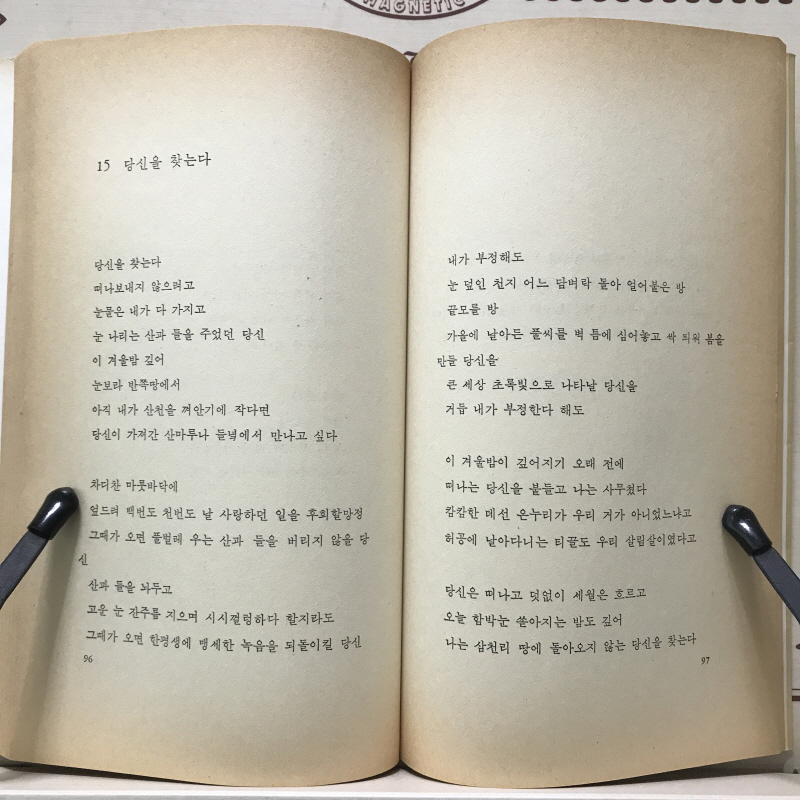 MAGNETIC
15 당신을 찾는다
당신을 찾는다
떠나보내지 않으려고
눈물은 내가 다 가지고
눈 나리는 산과 들을 주었던 당신
이 겨울밤 깊어
눈보라 반쪽땅에서
아직 내가 산천을 껴안기에 작다면
당신이 가져간 산마루나 들녘에서 만나고 싶다
차디찬 마룻바닥에
엎드려 백번도 천번도 날 사랑하던 일을 후회할망정
그때가 오면 풀벌레 우는 산과 들을 버리지 않을 당
신
산과 들을 놔두고
고운 눈 잔주름 지으며 시시껄렁하다 할지라도
그때가 오면 한평생에 맹세한 녹음을 되돌이킬 당신
96
내가 부정해도
눈 덮인 천지 어느 담벼락 돌아 얼어붙은 방
끝모를 방
가을에 날아든 풀씨를 벽 틈에 심어놓고 싹 틔워 봄을
만들 당신을
큰 세상 초록빛으로 나타날 당신을
거듭 내가 부정한다 해도
이 겨울밤이 깊어지기 오래 전에
떠나는 당신을 붙들고 나는 사무쳤다
캄캄한 데선 온누리가 우리 거가 아니었느냐고
허공에 날아다니는 티끌도 우리 살림살이였다고
당신은 떠나고 덧없이 세월은 흐르고
오늘 함박눈 쏟아지는 밤도 깊어
나는 삼천리 땅에 돌아오지 않는 당신을 찾는다
97